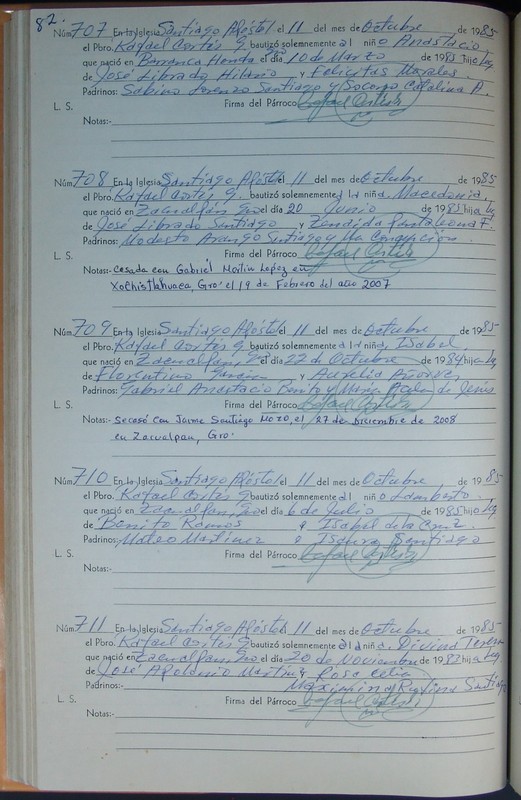 82.
Núm. 707 En la Iglesia Santiago Apóstol el 11 del mes de Octubre de 1985
el Pbro. Rafael Cortés G. bautizó solemnemente al niño Anastacio
que nació en Barranca Honda el día 10 de Marzo de 1985 hijo Leg.
de José Librado Hilario y Felicitas Morales.
Padrinos: Sabino Lorenzo Santiago y Socorro Catalina A.
L. S. Firma del Párroco Rafael Cortés
Notas:-
Núm. 708 En la Iglesia Santiago Apóstol el 11 del mes de Octubre de 1985
el Pbro. Rafael Cortés G. bautizó solemnemente a la niña Macedonia,
que nació en Zacualpán, Gro el día 20 Junio de 1985 hija Leg.
de José Librado Santiago y Zenaida F.
Padrinos: Modesto Arango Santiago y Ma Concepción
L. S. Firma del Párroco Rafael Cortés
Notas:- Casada con Gabriel Martin Lopez en
Xochistlahuaca, Gro. el 19 de Febrero del año 2007
Núm. 709 En la Iglesia Santiago Apóstol el 11 del mes de Octubre de 1985
el Pbro. Rafael Cortés G. bautizó solemnemente a la niña, Isabel
que nació en Zacualpan, Gro el día 22 de Octubre de 1984 hija Leg.
de Florentino y Aurelia Añorve,
Padrinos: Gabriel Anastacio Benito y María de Jesús
L. S. Firma del Párroco Rafael Cortés
Notas:- Se casó con Jaime Santiago Mozo, el 27 de Diciembre de 2008
en Zacualpan, Gro.
Núm. 710 En la Iglesia Santiago Apóstol el 11 del mes de Octubre de 1985
el Pbro. Rafael Cortés G. bautizó solemnemente al niño Lamberto.
que nació en Zacualpan, Gro el día 6 de Julio de 1985 hijo Leg.
de Benito Ramos e Isabel de la Cruz.
Padrinos: Mateo Martinez e Isaura Santiago
L. S. Firma del Párroco Rafael Cortés
Notas:-
Núm. 711 En la Iglesia Santiago Apóstol el 11 del mes de Octubre de 1985
el Pbro. Rafael Cortés G. bautizó solemnemente a la niña. Divina Teresa
que nació en Zacualpan, Gro el día 20 de Noviembre de 1983 hija Leg.
de José Apolonio Martín y Rosa Celia
Padrinos:- Maximino Rufina Santiago
L. S. Firma del Párroco Rafael Cortés
Notas:-